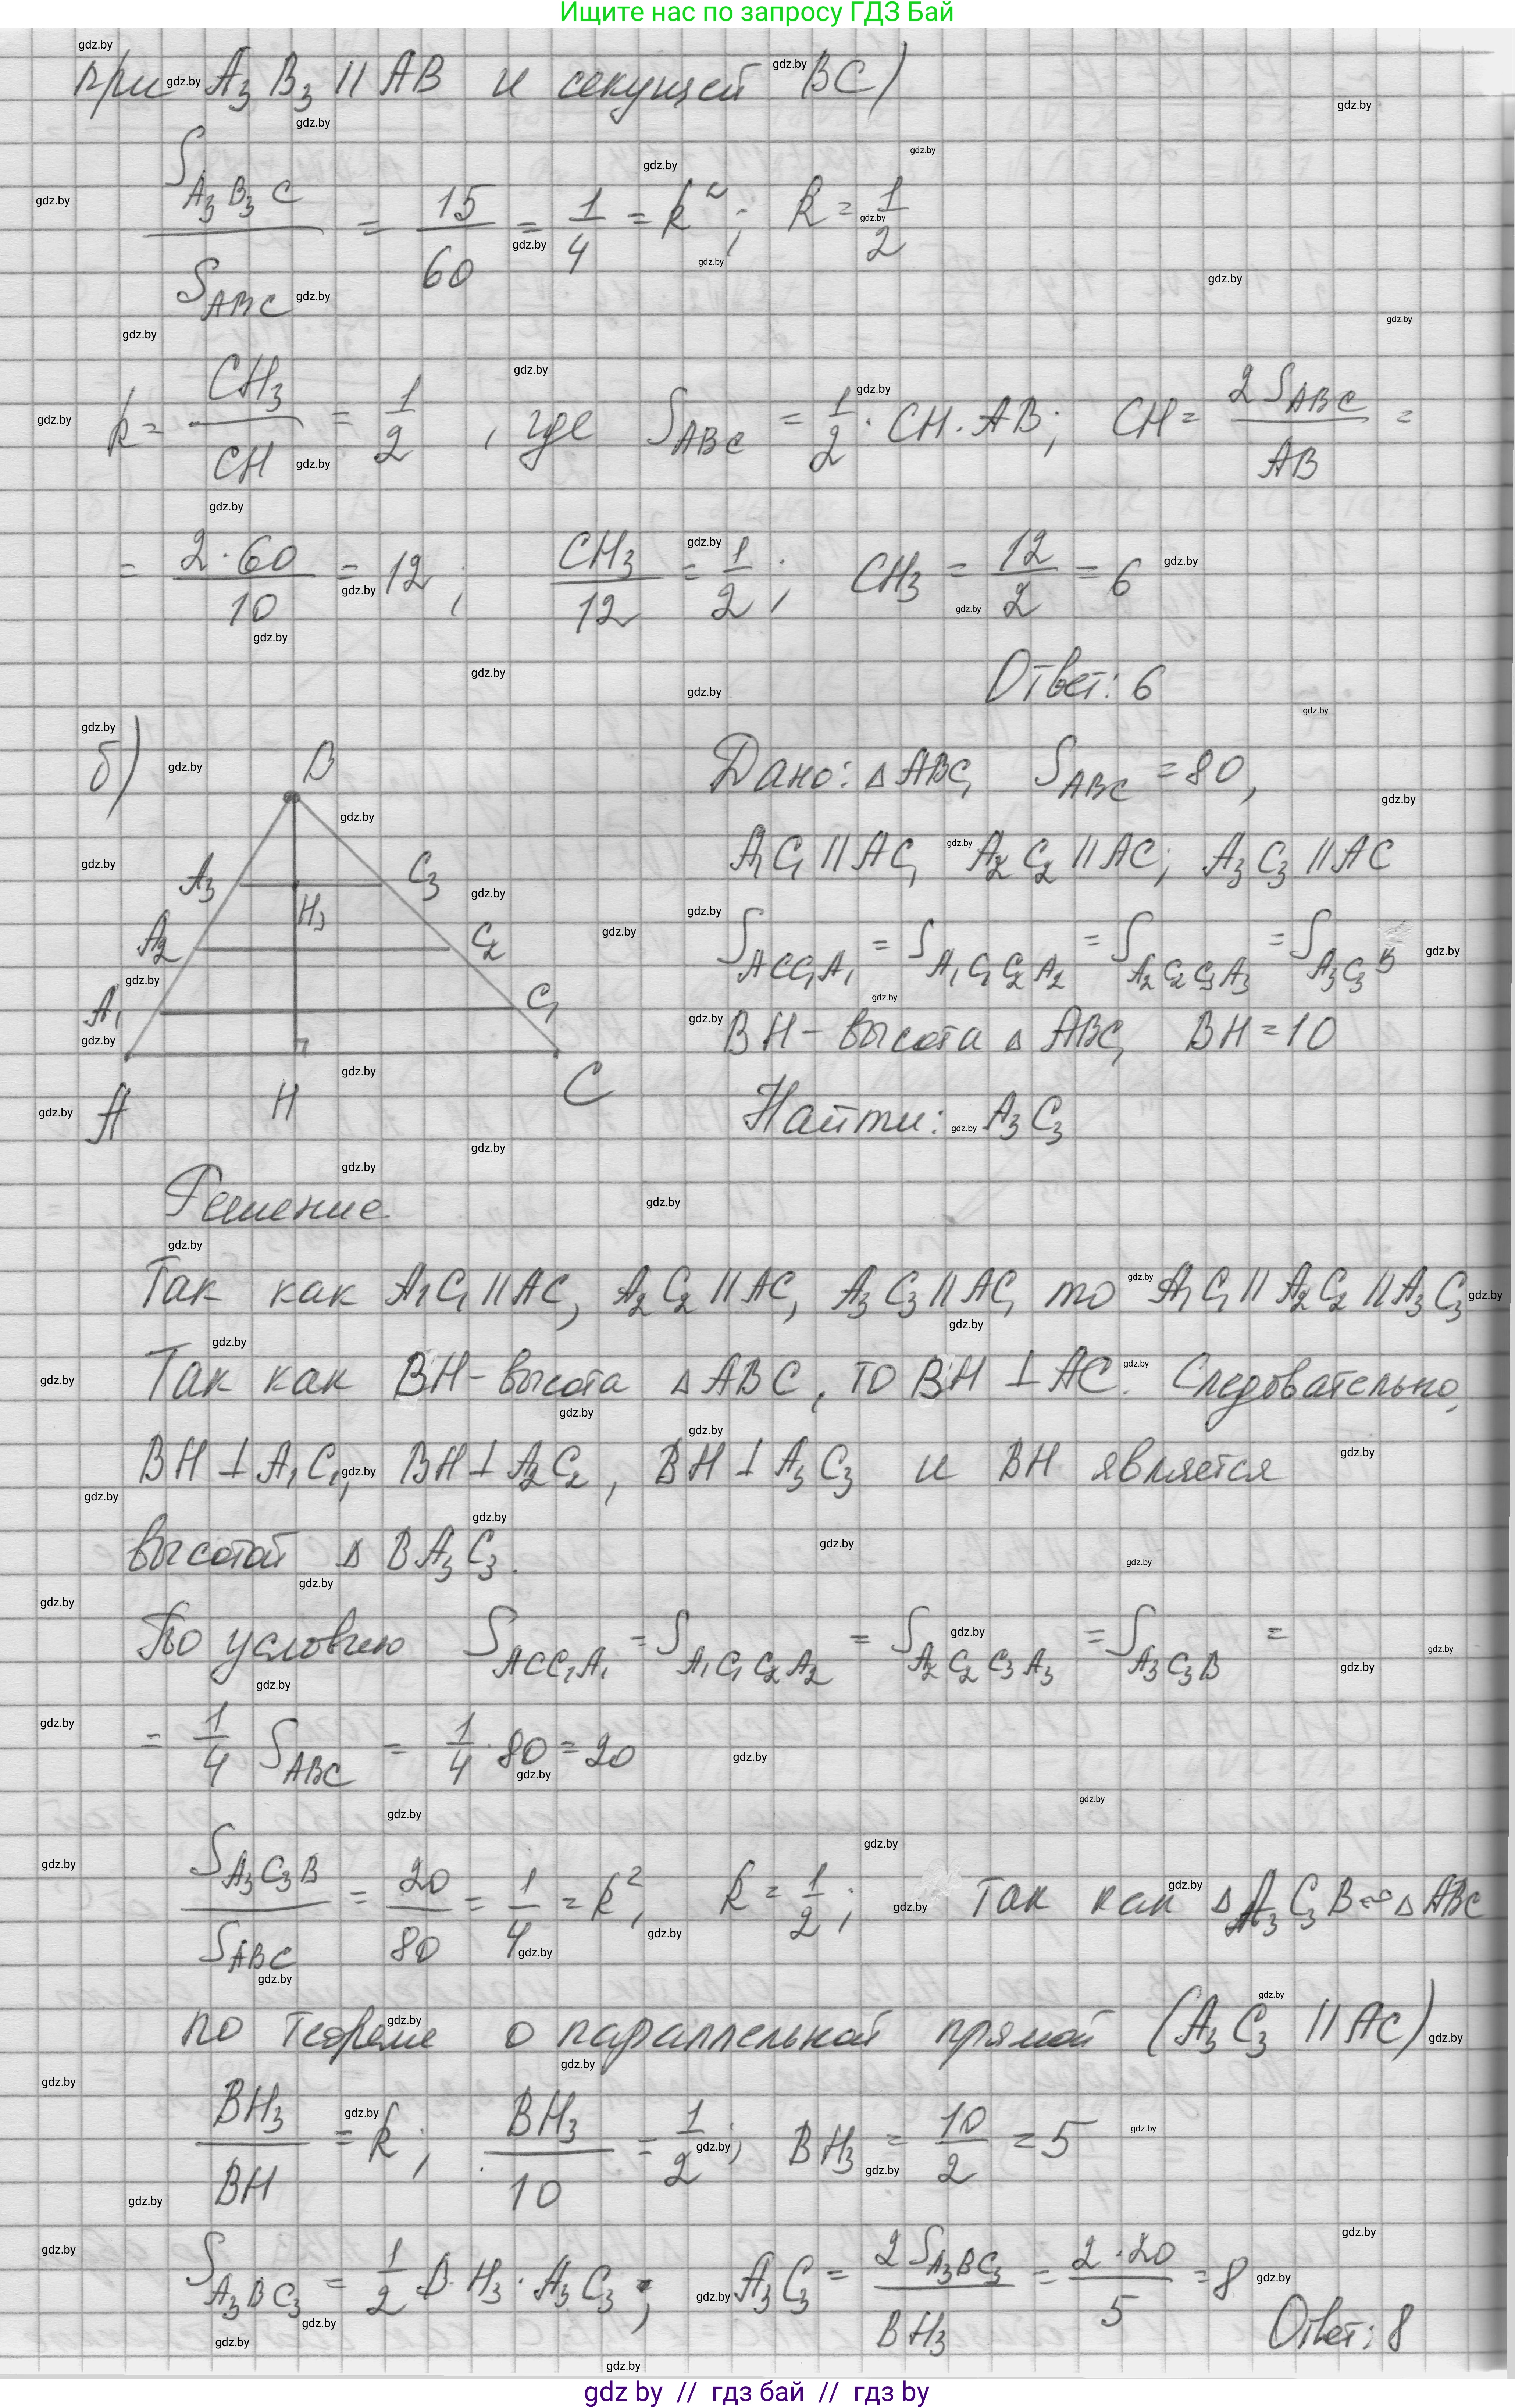 Ищите нас по запросу ГДЗ Бай
при A₃B₃ || AB и секущей BC)
S_{A₃B₃C} / S_{ABC} = 15/60 = 1/4 = k²; k = 1/2
k = CH₃/CH = 1/2, где S_{ABC} = 1/2 · CH · AB; CH = 2S_{ABC}/AB =
= 2·60/10 = 12; CH₃/12 = 1/2; CH₃ = 12/2 = 6
Ответ: 6
б)
B
A₃ C₃
H₃
A₂ C₂
A₁ C₁
A H C
Дано: △ABC, S_{ABC} = 80,
A₁C₁ || AC, A₂C₂ || AC; A₃C₃ || AC
S_{ACC₁A₁} = S_{A₁C₁C₂A₂} = S_{A₂C₂C₃A₃} = S_{A₃C₃B}
BH – высота △ABC, BH = 10
Найти: A₃C₃
Решение
Так как A₁C₁ || AC, A₂C₂ || AC, A₃C₃ || AC, то A₁C₁ || A₂C₂ || A₃C₃
Так как BH – высота △ABC, то BH ⊥ AC. Следовательно,
BH ⊥ A₁C₁, BH ⊥ A₂C₂, BH ⊥ A₃C₃ и BH является
высотой △BA₃C₃.
По условию S_{ACC₁A₁} = S_{A₁C₁C₂A₂} = S_{A₂C₂C₃A₃} = S_{A₃C₃B} =
= 1/4 S_{ABC} = 1/4 · 80 = 20
S_{A₃C₃B} / S_{ABC} = 20/80 = 1/4 = k², k = 1/2; Так как △A₃C₃B ∽ △ABC
по теореме о параллельной прямой (A₃C₃ || AC)
BH₃/BH = k; BH₃/10 = 1/2; BH₃ = 10/2 = 5
S_{A₃BC₃} = 1/2 B·H₃ · A₃C₃; A₃C₃ = 2S_{A₃BC₃}/BH₃ = 2·20/5 = 8
Ответ: 8
gdz by // гдз бай // гдз by